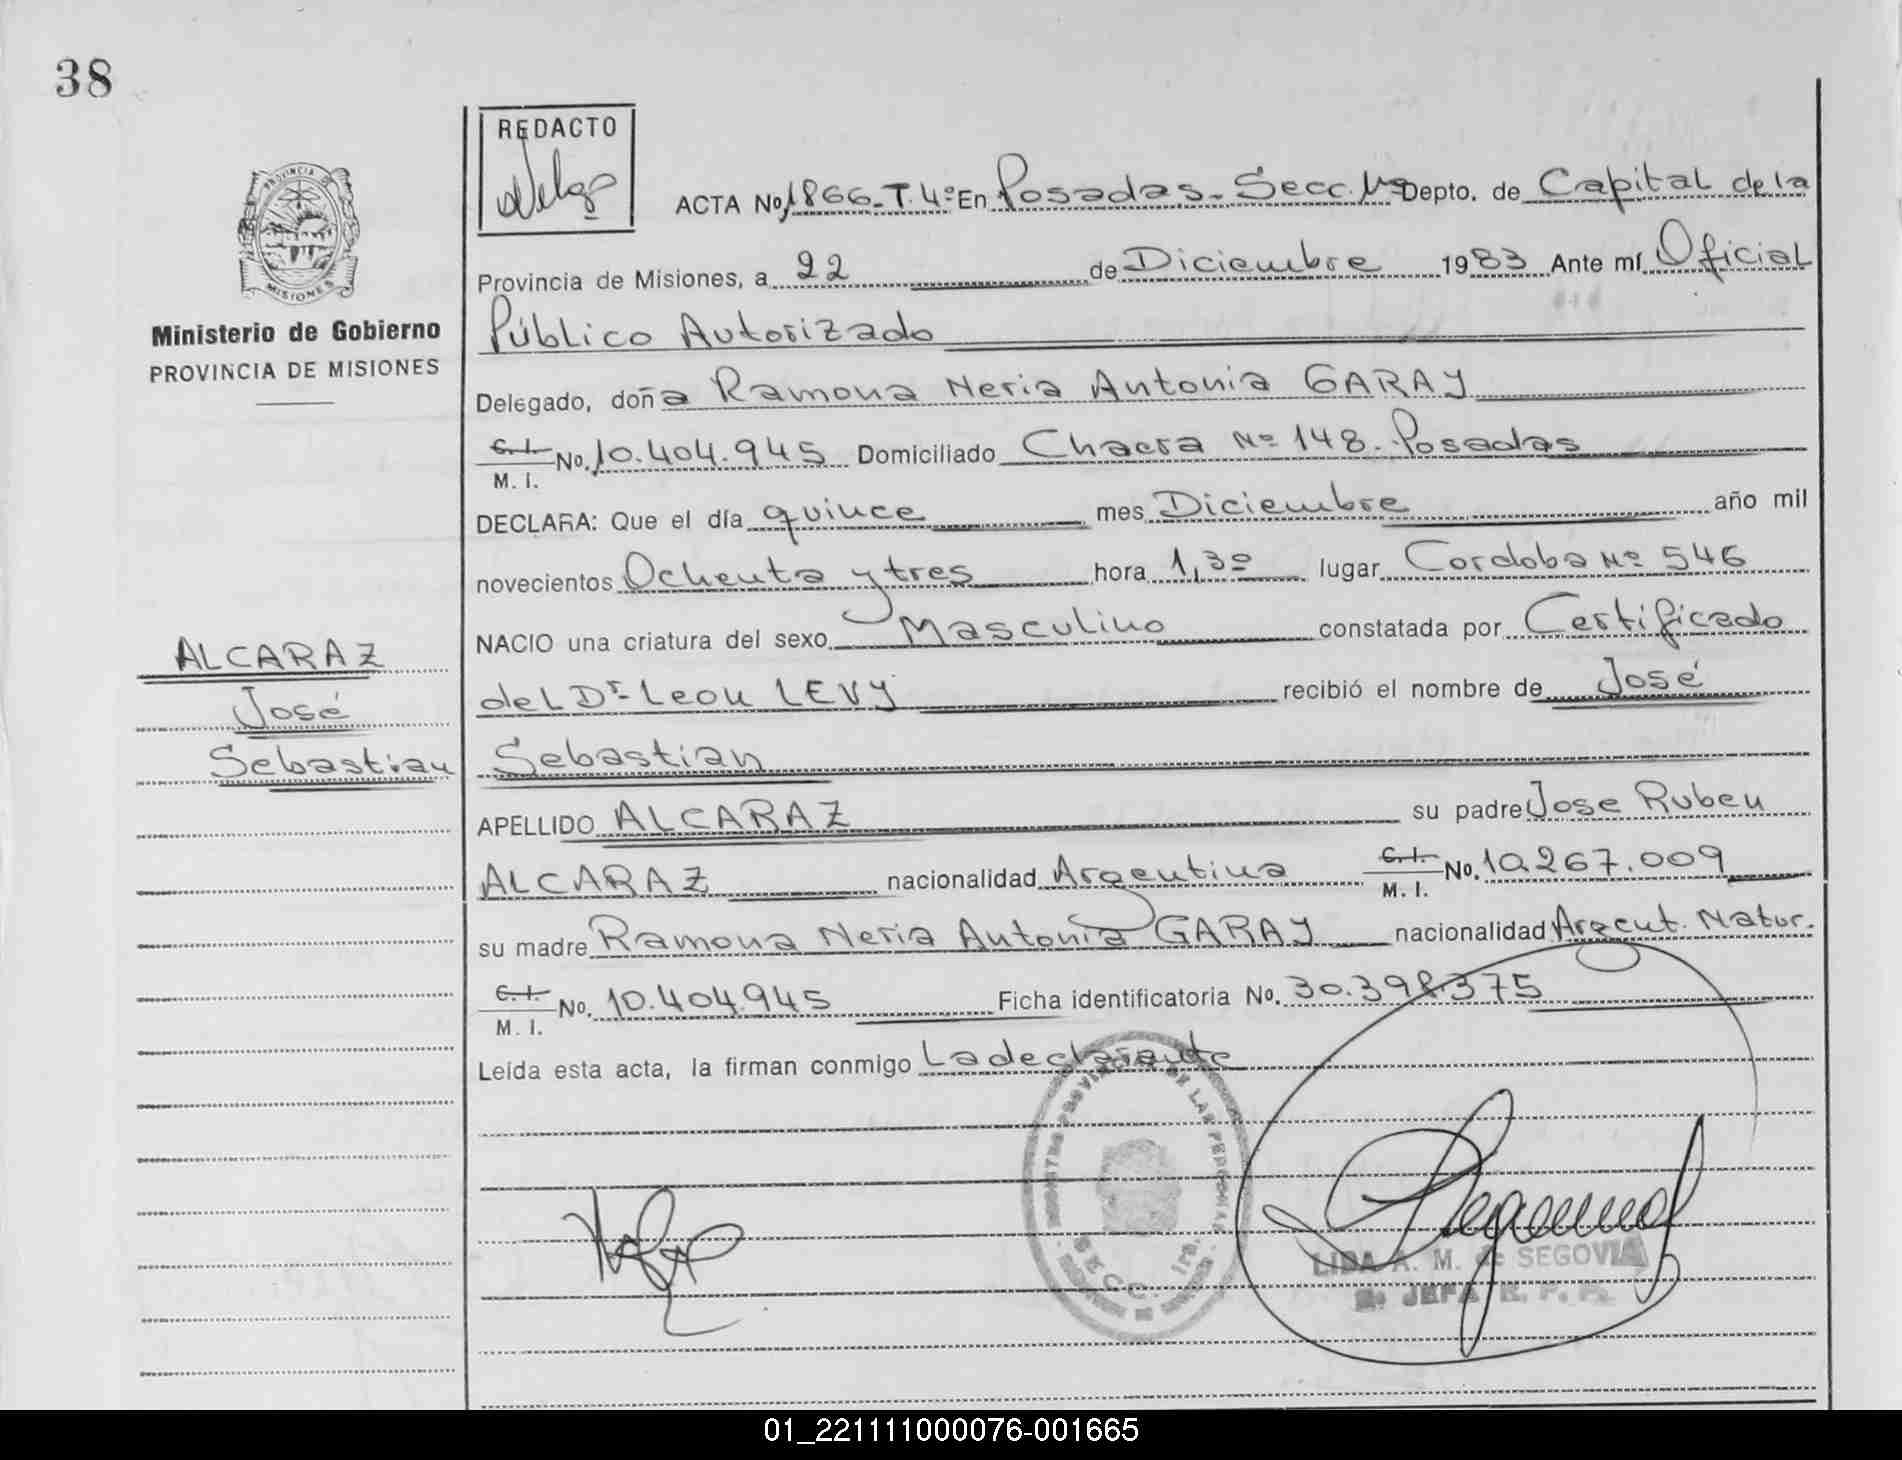 38
REDACTO
ACTA No. 1866-T.4º En Posadas-Secc. 1ra Depto. de Capital de la
Provincia de Misiones, a 22 de Diciembre 1983 Ante mí Oficial
Público Autorizado
Delegado, doña Ramona Neria Antonia GARAY
C.I. M.I. No. 10.404.945 Domiciliado Chacra Nº 148. Posadas
DECLARA: Que el día quince mes Diciembre año mil
novecientos Ochenta y tres hora 1,30 lugar Cordoba Nº 546
NACIO una criatura del sexo Masculino constatada por Certificado
del Dr Leon LEVY recibió el nombre de José
Sebastian
APELLIDO ALCARAZ su padre Jose Ruben
ALCARAZ nacionalidad Argentina C.I. M.I. No. 10.267.009
su madre Ramona Neria Antonia GARAY nacionalidad Argent. Natur.
C.I. M.I. No. 10.404.945 Ficha identificatoria No. 30.398.375
Leída esta acta, la firman conmigo La declarante
PROVINCIA DE MISIONES
Ministerio de Gobierno
PROVINCIA DE MISIONES
ALCARAZ
José
Sebastian
PROVINCIAL DE LAS PERSONAS
SECC. 1ra.
LIDA A. M. de SEGOVIA
JEFA R. P. P.
01_221111000076-001665